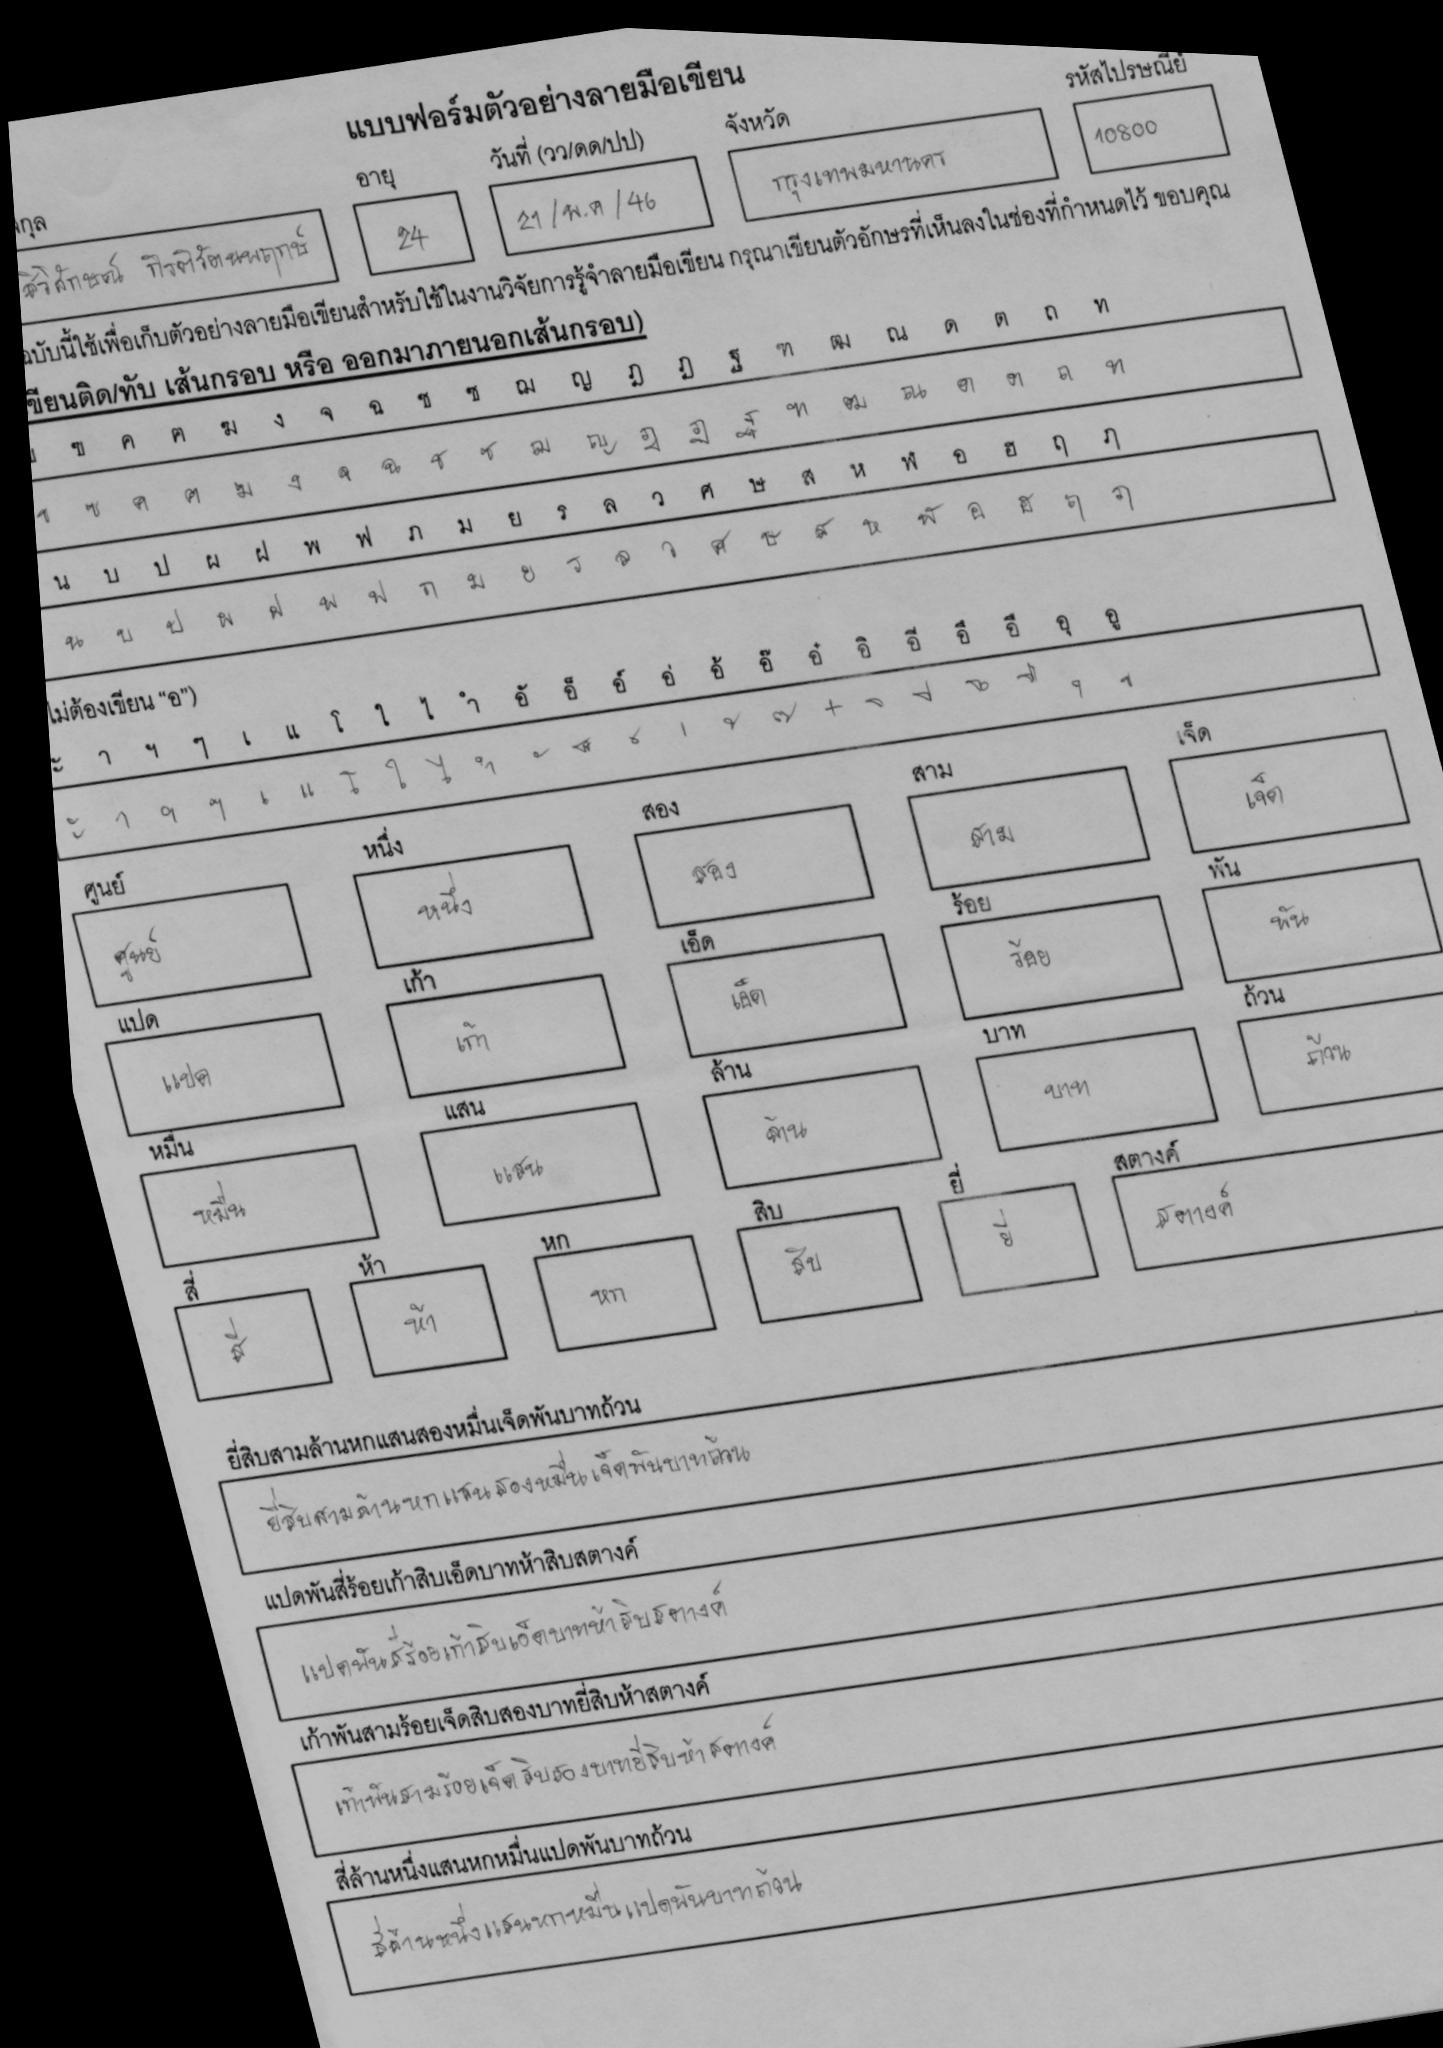 แบบฟอร์มตัวอย่างลายมือเขียน
อายุ วันที่ (วว/ดด/ปป) จังหวัด รหัสไปรษณีย์
24 21/พ.ค/46 กรุงเทพมหานคร 10800
ฉบับนี้ใช้เพื่อเก็บตัวอย่างลายมือเขียนสำหรับใช้ในงานวิจัยการรู้จำลายมือเขียน กรุณาเขียนตัวอักษรที่เห็นลงในช่องที่กำหนดไว้ ขอบคุณ
เขียนติด/ทับ เส้นกรอบ หรือ ออกมาภายนอกเส้นกรอบ)
ฃ ค ฅ ฆ ง จ ฉ ช ซ ฌ ญ ฎ ฏ ฐ ฑ ฒ ณ ด ต ถ ท
ข ฃ ค ฅ ฆ ง จ ฉ ช ซ ฌ ญ ฎ ฏ ฐ ฑ ฒ ณ ด ต ถ ท
น บ ป ผ ฝ พ ฟ ภ ม ย ร ล ว ศ ษ ส ห ฬ อ ฮ ฤ ฦ
น บ ป ผ ฝ พ ฟ ภ ม ย ร ล ว ศ ษ ส ห ฬ อ ฮ ฤ ฦ
ไม่ต้องเขียน “อ”)
ะ า ฯ ๆ เ แ โ ใ ไ ำ อั อ็ อ์ อ่ อ้ อ๊ อ๋ อิ อี อึ อื อุ อู
ะ า ฯ ๆ เ แ โ ใ ไ ำ ั ็ ์ ่ ้ ๊ ๋ ิ ี ึ ื ุ ู
ศูนย์ หนึ่ง สอง สาม เจ็ด
ศูนย์ หนึ่ง สอง สาม เจ็ด
แปด เก้า เอ็ด ร้อย พัน
แปด เก้า เอ็ด ร้อย พัน
หมื่น แสน ล้าน บาท ถ้วน
หมื่น แสน ล้าน บาท ถ้วน
สี่ ห้า หก สิบ ยี่ สตางค์
สี่ ห้า หก สิบ ยี่ สตางค์
ยี่สิบสามล้านหกแสนสองหมื่นเจ็ดพันบาทถ้วน
ยี่สิบสามล้านหกแสนสองหมื่นเจ็ดพันบาทถ้วน
แปดพันสี่ร้อยเก้าสิบเอ็ดบาทห้าสิบสตางค์
แปดพันสี่ร้อยเก้าสิบเอ็ดบาทห้าสิบสตางค์
เก้าพันสามร้อยเจ็ดสิบสองบาทยี่สิบห้าสตางค์
เก้าพันสามร้อยเจ็ดสิบสองบาทยี่สิบห้าสตางค์
สี่ล้านหนึ่งแสนหกหมื่นแปดพันบาทถ้วน
สี่ล้านหนึ่งแสนหกหมื่นแปดพันบาทถ้วน